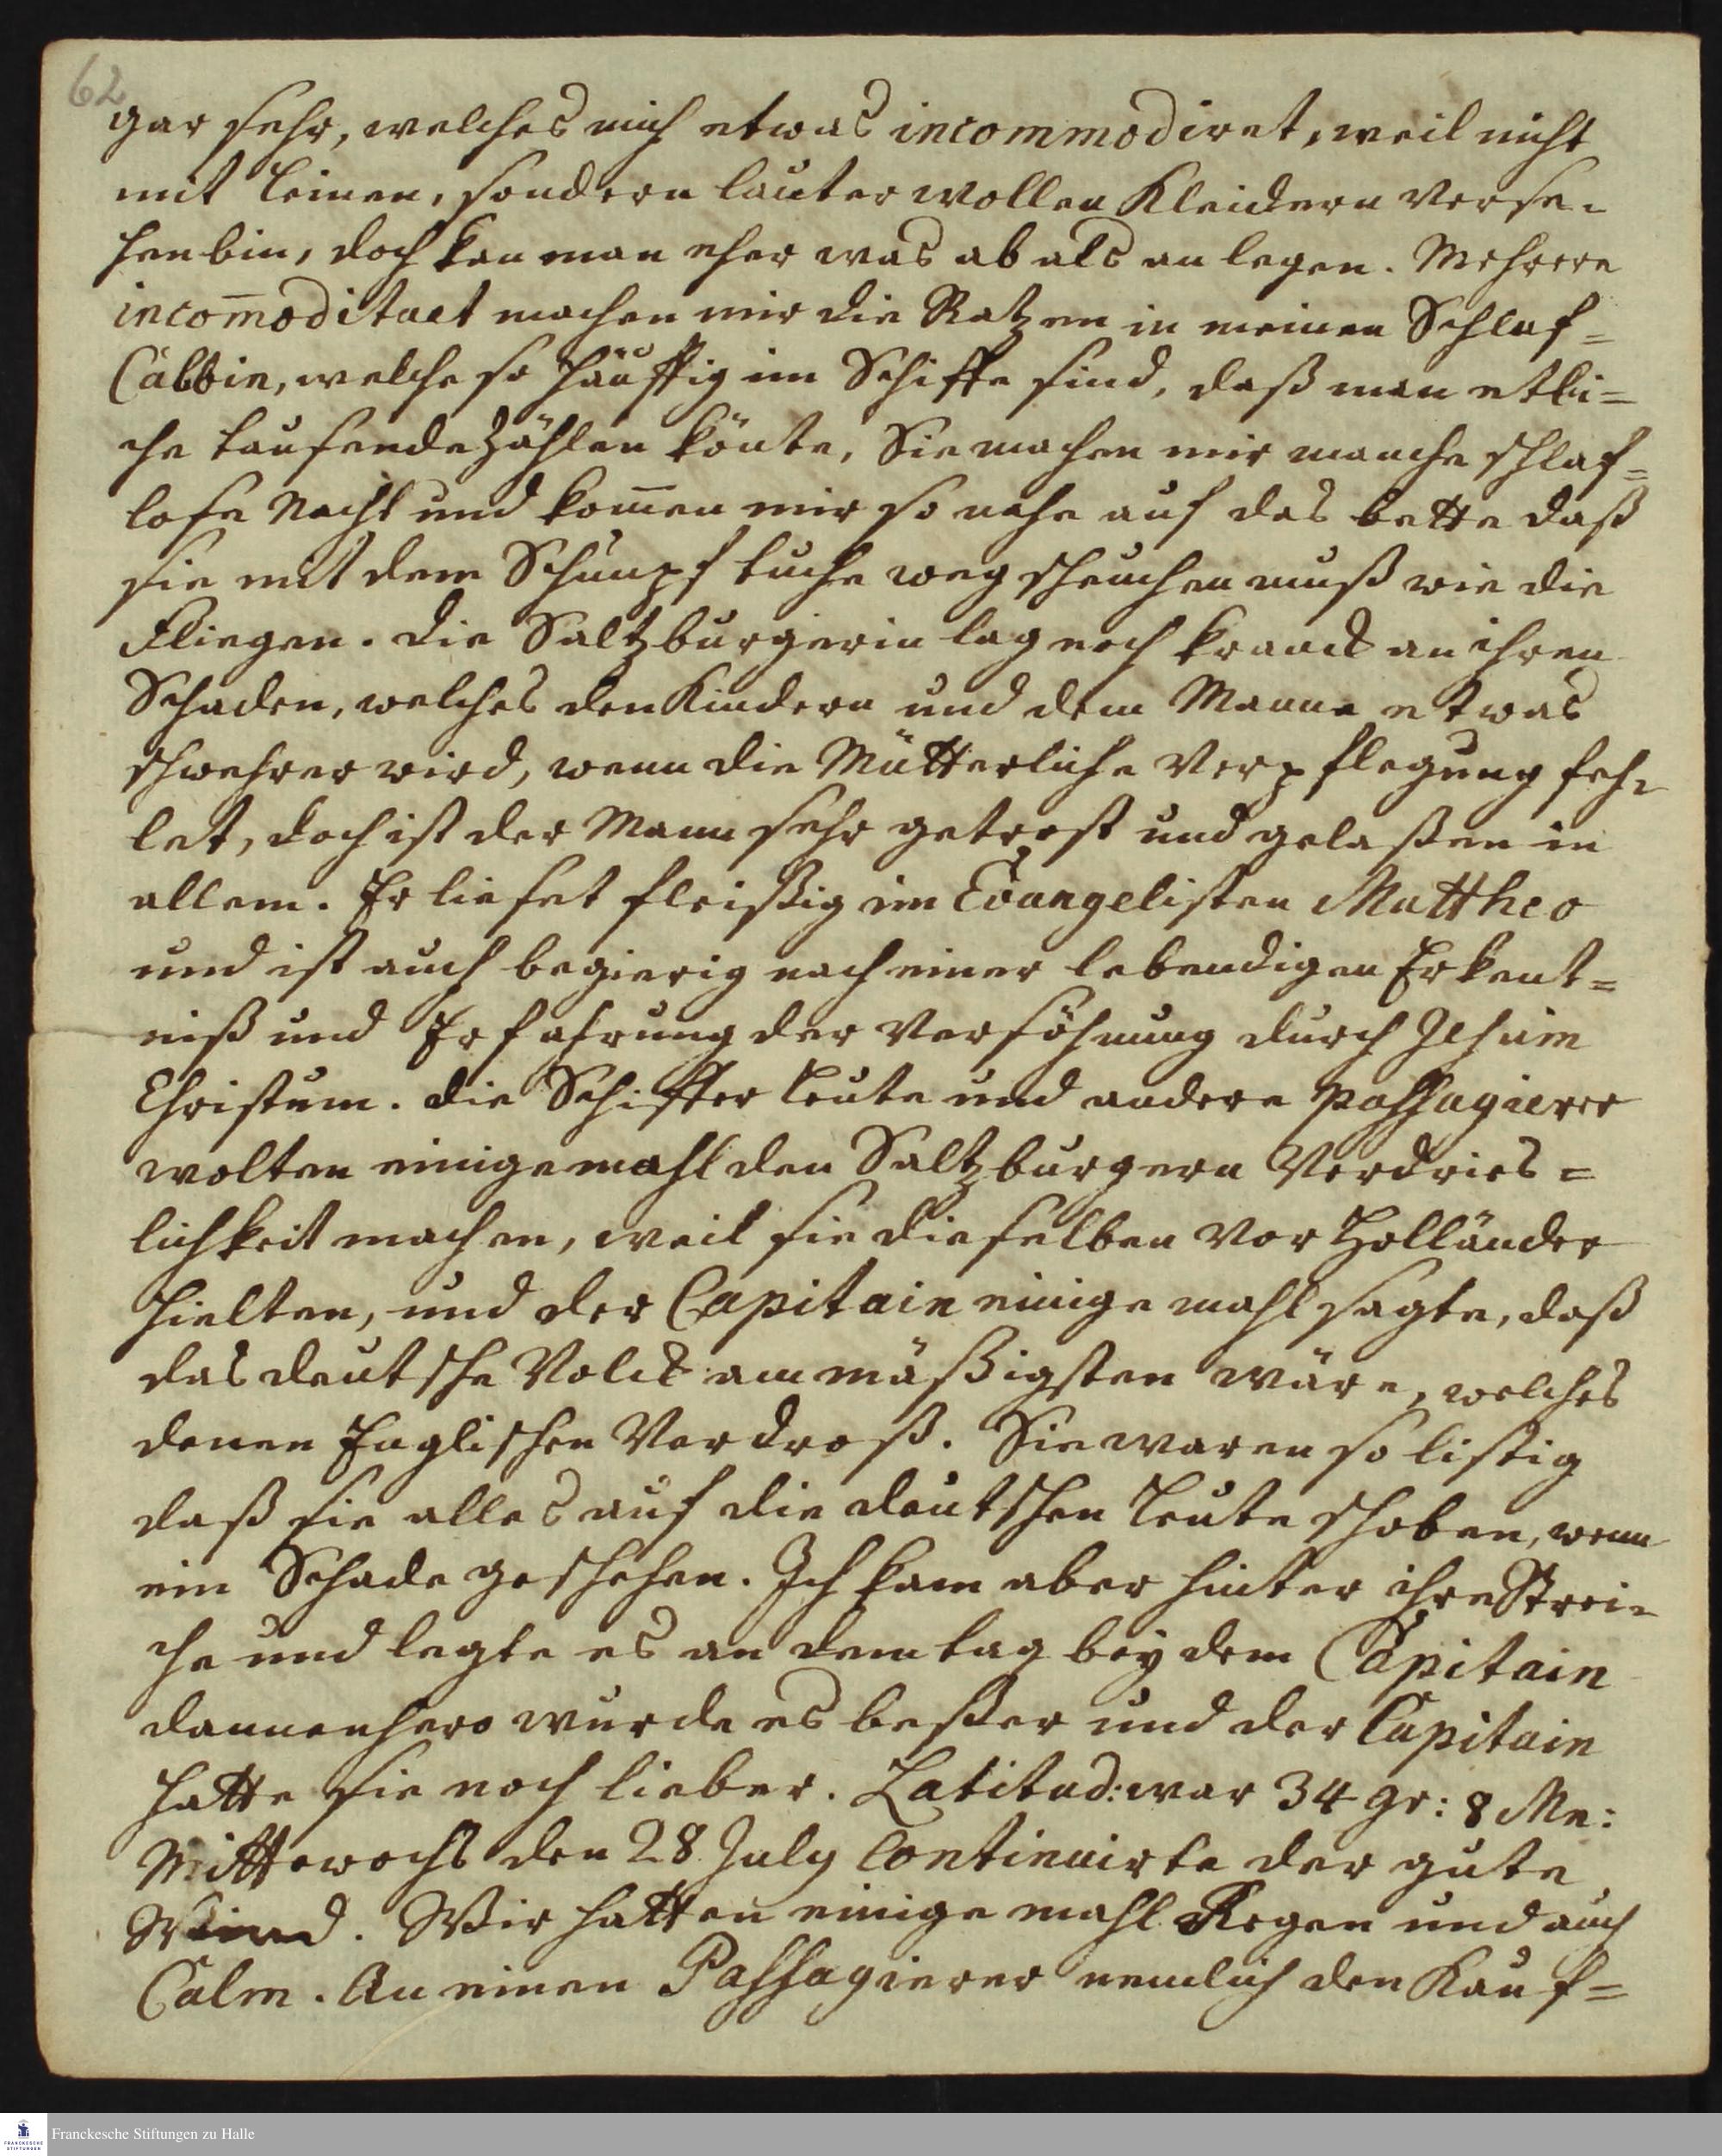 62
gar sehr, welches mich etwas incommodiret, weil nicht
mit leinen, sondern lauter wollen Kleidern verse-
hen bin, doch kan man eher was ab als an legen. Mehrere
incom̅oditaet machen mir die Ratzen in meinen Schlaf=
Cabbin, welche so häuffig im Schiffe sind, daß man etli=
che tausende zählen könte, Sie machen mir manche schlaf=
lose Nacht und kom̅en mir so nahe auf das bette daß
sie mit dem Schnupf tuche weg scheuchen muß wie die
Fliegen. die Saltzburgerin lag noch kranck an ihren
Schaden, welches den Kindern und dem Manne etwas
schwehrer wird, wenn die Mütterliche Verpflegung feh-
let, doch ist der Mann sehr getrost und gelaßen in
allem. Er lieset fleißig im Evangelisten Mattheo
und ist auch begierig nach einer lebendigen Erkent=
niß und Erfahrung der Versöhnung durch Jesum
Christum. die Schiffer leute und andere Passagierer
wolten einigemahl den Saltzburgern Verdries=
lichkeit machen, weil sie dieselben vor Holländer
hielten, und der Capitain einige mahl sagte, daß
das deutsche Volck am mäßigsten wäre, welches
denen Englischen Verdroß. Sie waren so listig
daß sie alles auf die deutschen leute schoben, wenn
ein Schade geschehen. Ich kam aber hinter ihre Strei-
che und legte es an dem tag bey dem Capitain
dannenhero wurde es beßer und der Capitain
hatte sie noch lieber. Latitud: war 34 gr: 8 Mn:
Mittewochs den 28 July Continuirte der gute
Wind. Wir hatten einige mahl Regen und auch
Calm. An einen Passagierer nemlich den Kauf=
Franckesche Stiftungen zu Halle